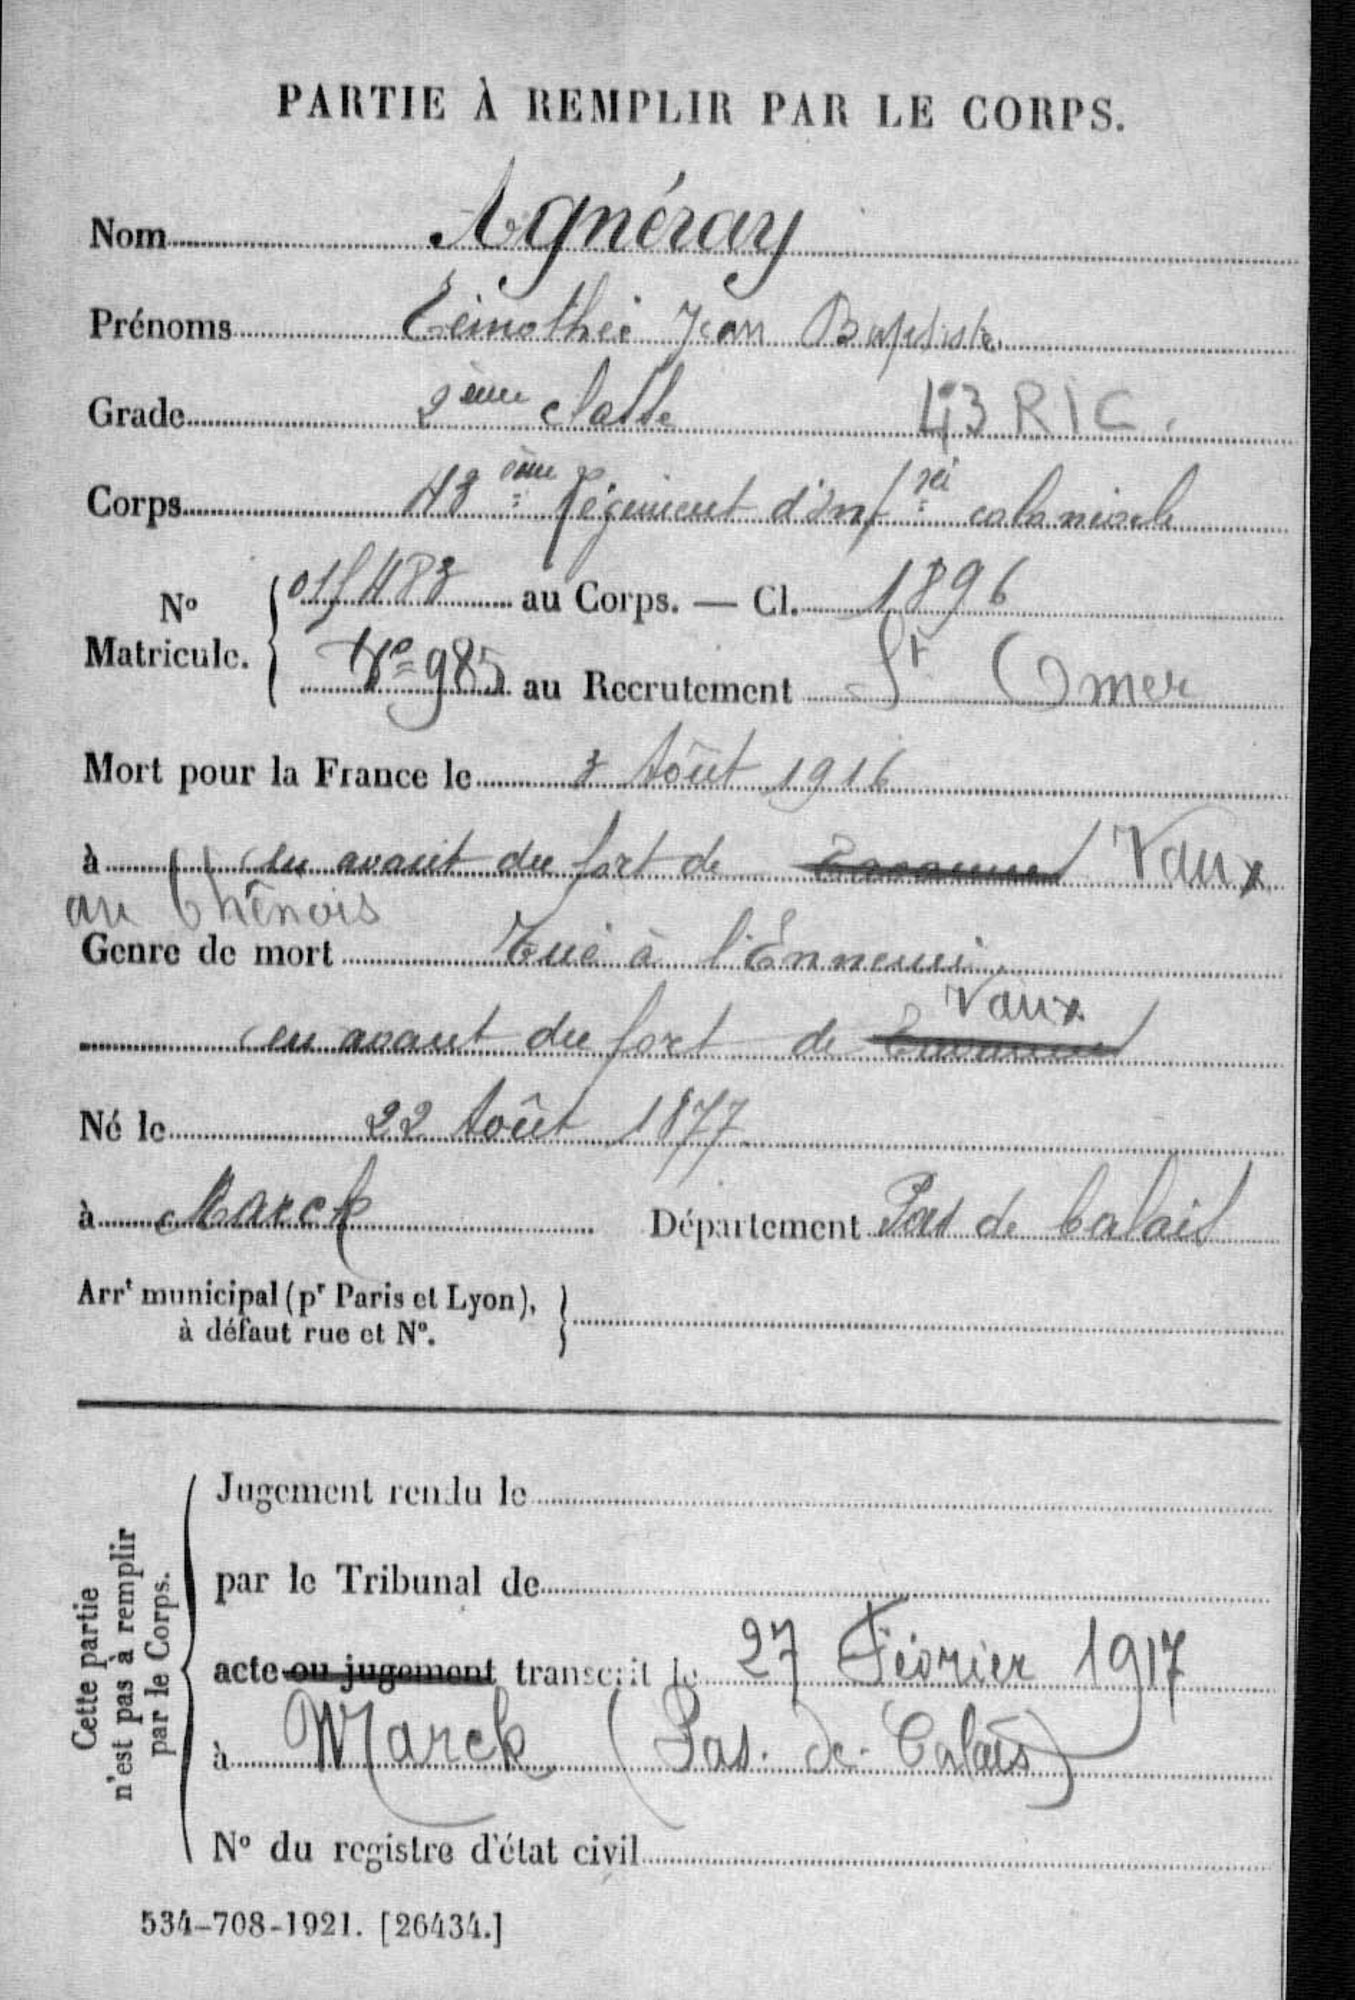 PARTIE À REMPLIR PAR LE CORPS.
Nom Agnéray
Prénoms Timothée Jean Baptiste
Grade 2ème classe 43 RIC.
Corps 43ème Régiment d'Infrie coloniale
No Matricule. 483 au Corps. — Cl. 1896
No 985 au Recrutement St Omer
Mort pour la France le 3 Août 1916
à en avant du fort de Tavannes Vaux
au Chênois
Genre de mort Tué à l'Ennemi
Vaux
en avant du fort de Tavannes
Né le 22 Août 1877
à Marck Département Pas de Calais
Arrt municipal (pr Paris et Lyon),
à défaut rue et No.
Cette partie
n'est pas à remplir
par le Corps.
Jugement rendu le
par le Tribunal de
acte ou jugement transcrit le 27 Février 1917
à Marck (Pas-de-Calais)
No du registre d'état civil
534-708-1921. [26434.]